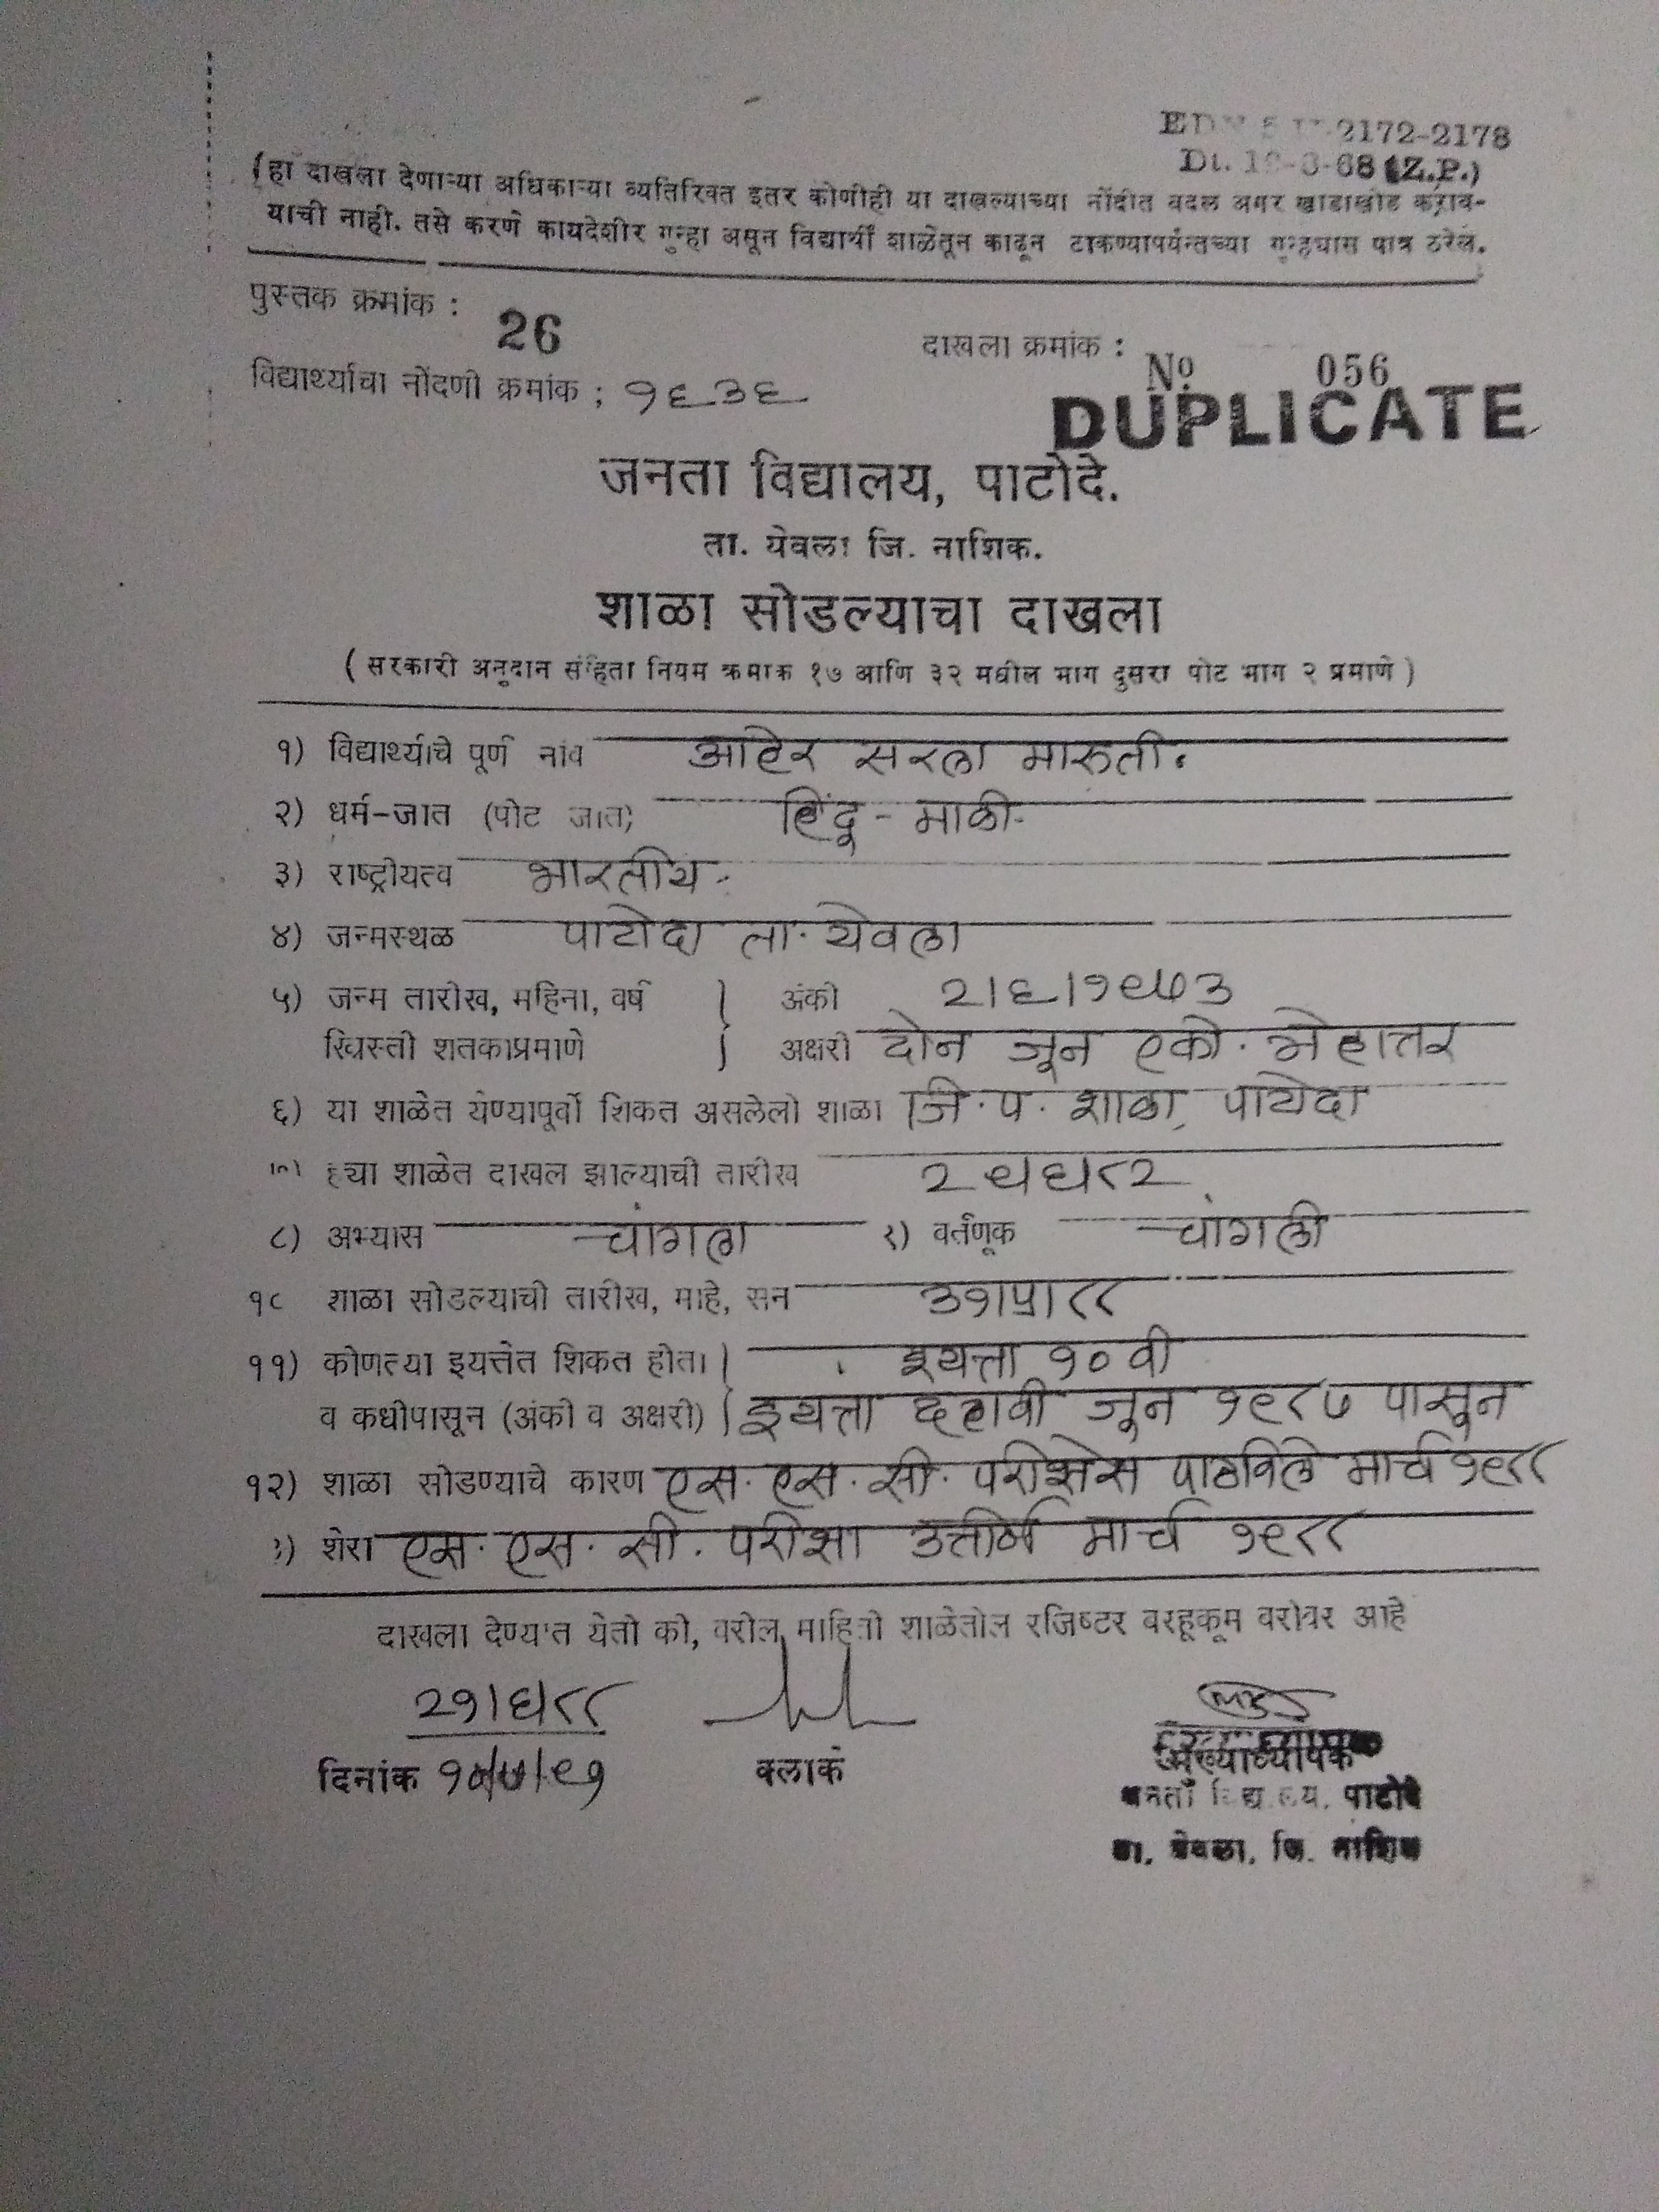 2172-2178
Dt. 68 (Z.P.)
(हा दाखला देणाऱ्या अधिकाऱ्या व्यतिरिक्त इतर कोणीही या दाखल्याच्या नोंदीत बदल अगर खाडाखोड कराव-
याची नाही. तसे करणे कायदेशीर गुन्हा असून विद्यार्थी शाळेतून काढून टाकण्यापर्यन्तच्या गुन्ह्यास पात्र ठरेल.
पुस्तक क्रमांक : 26
दाखला क्रमांक : No 056
विद्यार्थ्याचा नोंदणी क्रमांक ; १६३६
DUPLICATE
जनता विद्यालय, पाटोदे.
ता. येवला जि. नाशिक.
शाळा सोडल्याचा दाखला
( सरकारी अनुदान संहिता नियम क्रमाक १७ आणि ३२ मधील भाग दुसरा पोट भाग २ प्रमाणे )
१) विद्यार्थ्याचे पूर्ण नांव आहेर सरला मारुती.
२) धर्म-जात (पोट जात) हिंदू - माळी-
३) राष्ट्रीयत्व भारतीय -
४) जन्मस्थळ पाटोदा ता. येवला
५) जन्म तारीख, महिना, वर्ष अंकी २।६।१९७३
ख्रिस्ती शतकाप्रमाणे अक्षरी दोन जून एको. त्रेहात्तर
६) या शाळेत येण्यापूर्वी शिकत असलेली शाळा जि. प. शाळा, पाटोदा
ह्या शाळेत दाखल झाल्याची तारीख
८) अभ्यास चांगला ९) वर्तणूक चांगली
१० शाळा सोडल्याची तारीख, माहे, सन ३१।५।८८
११) कोणत्या इयत्तेत शिकत होता इयत्ता १० वी
व कधीपासून (अंकी व अक्षरी) इयत्ता दहावी जून १९८७ पासून
१२) शाळा सोडण्याचे कारण एस. एस. सी. परीक्षेस पाठविले मार्च १९८८
शेरा एस. एस. सी. परीक्षा उत्तीर्ण मार्च १९८८
दाखला देण्यात येतो की, वरील माहिती शाळेतील रजिष्टर बरहूकूम बरोबर आहे
२१।६।८८
दिनांक १०/७/९१
क्लार्क
मुख्याध्यापक
जनता विद्यालय, पाटोदे
ता. येवला, जि. नाशिक